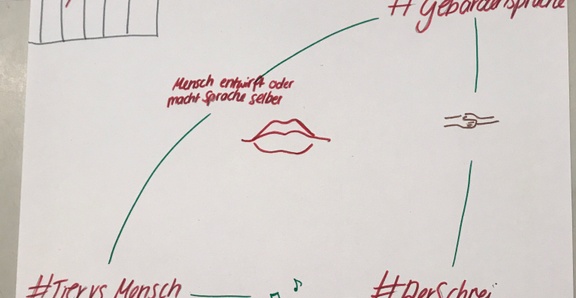 #Gebärdensprache
Mensch entwirft oder
macht Sprache selber
#Tier vs Mensch
#DerSchrei